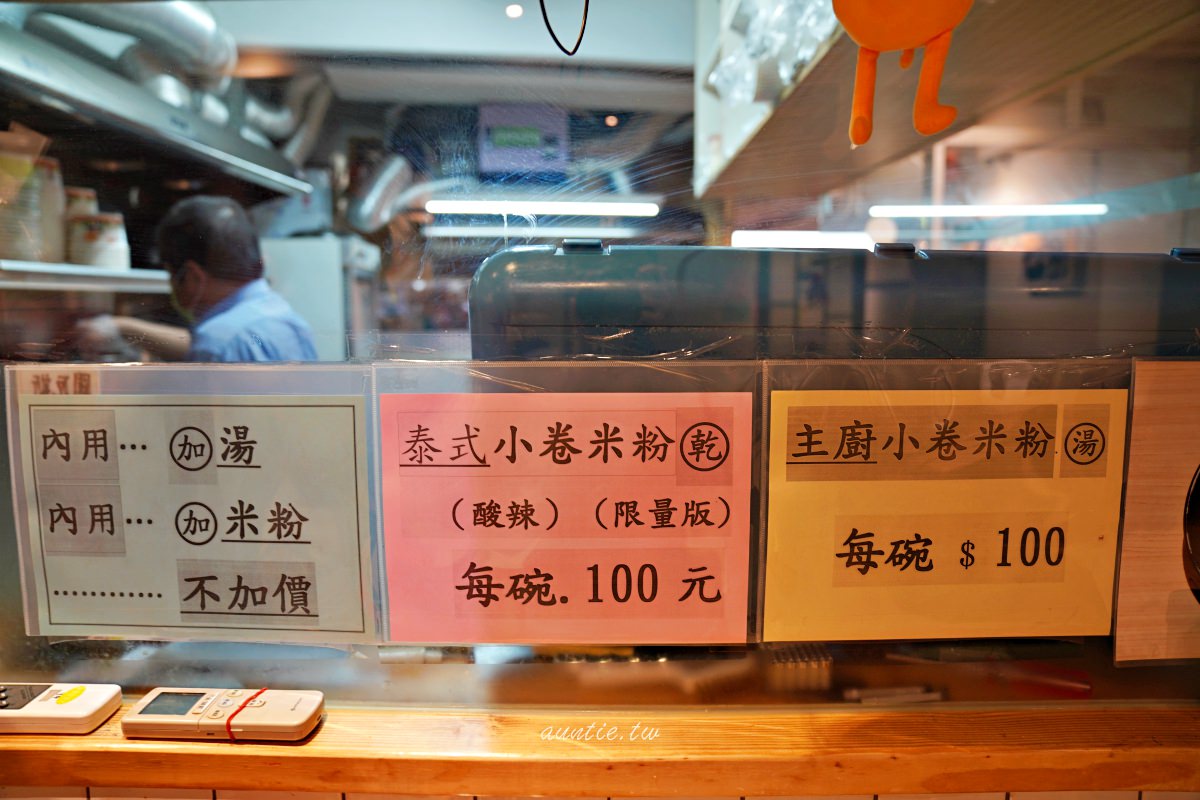 內用… 加湯
內用… 加米粉
………… 不加價
泰式小卷米粉乾
（酸辣）（限量版）
每碗.100 元
主廚小卷米粉湯
每碗 $ 100
auntie.tw